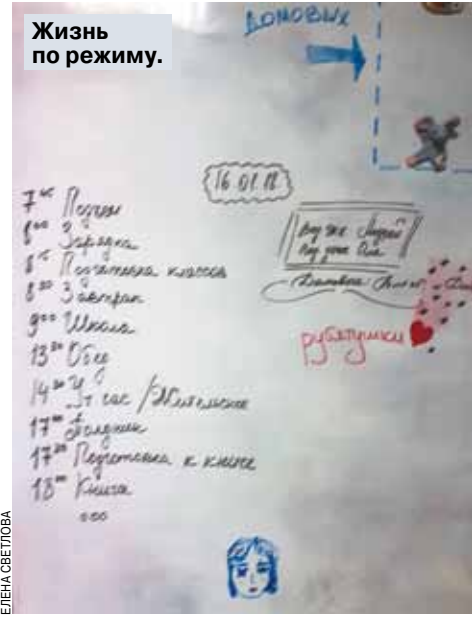 Жизнь
по режиму.
ДОМОВЫХ
16.01.18
7⁴⁵ Подъем
8⁰⁰ Зарядка
8¹⁵ Подготовка классов
8³⁰ Завтрак
9⁰⁰ Школа
13³⁰ Обед
14³⁰
час /
17⁰⁰ Полдник
17²⁰ Подготовка к книге
18⁰⁰ Книга
ooo
рубятушки
ЕЛЕНА СВЕТЛОВА